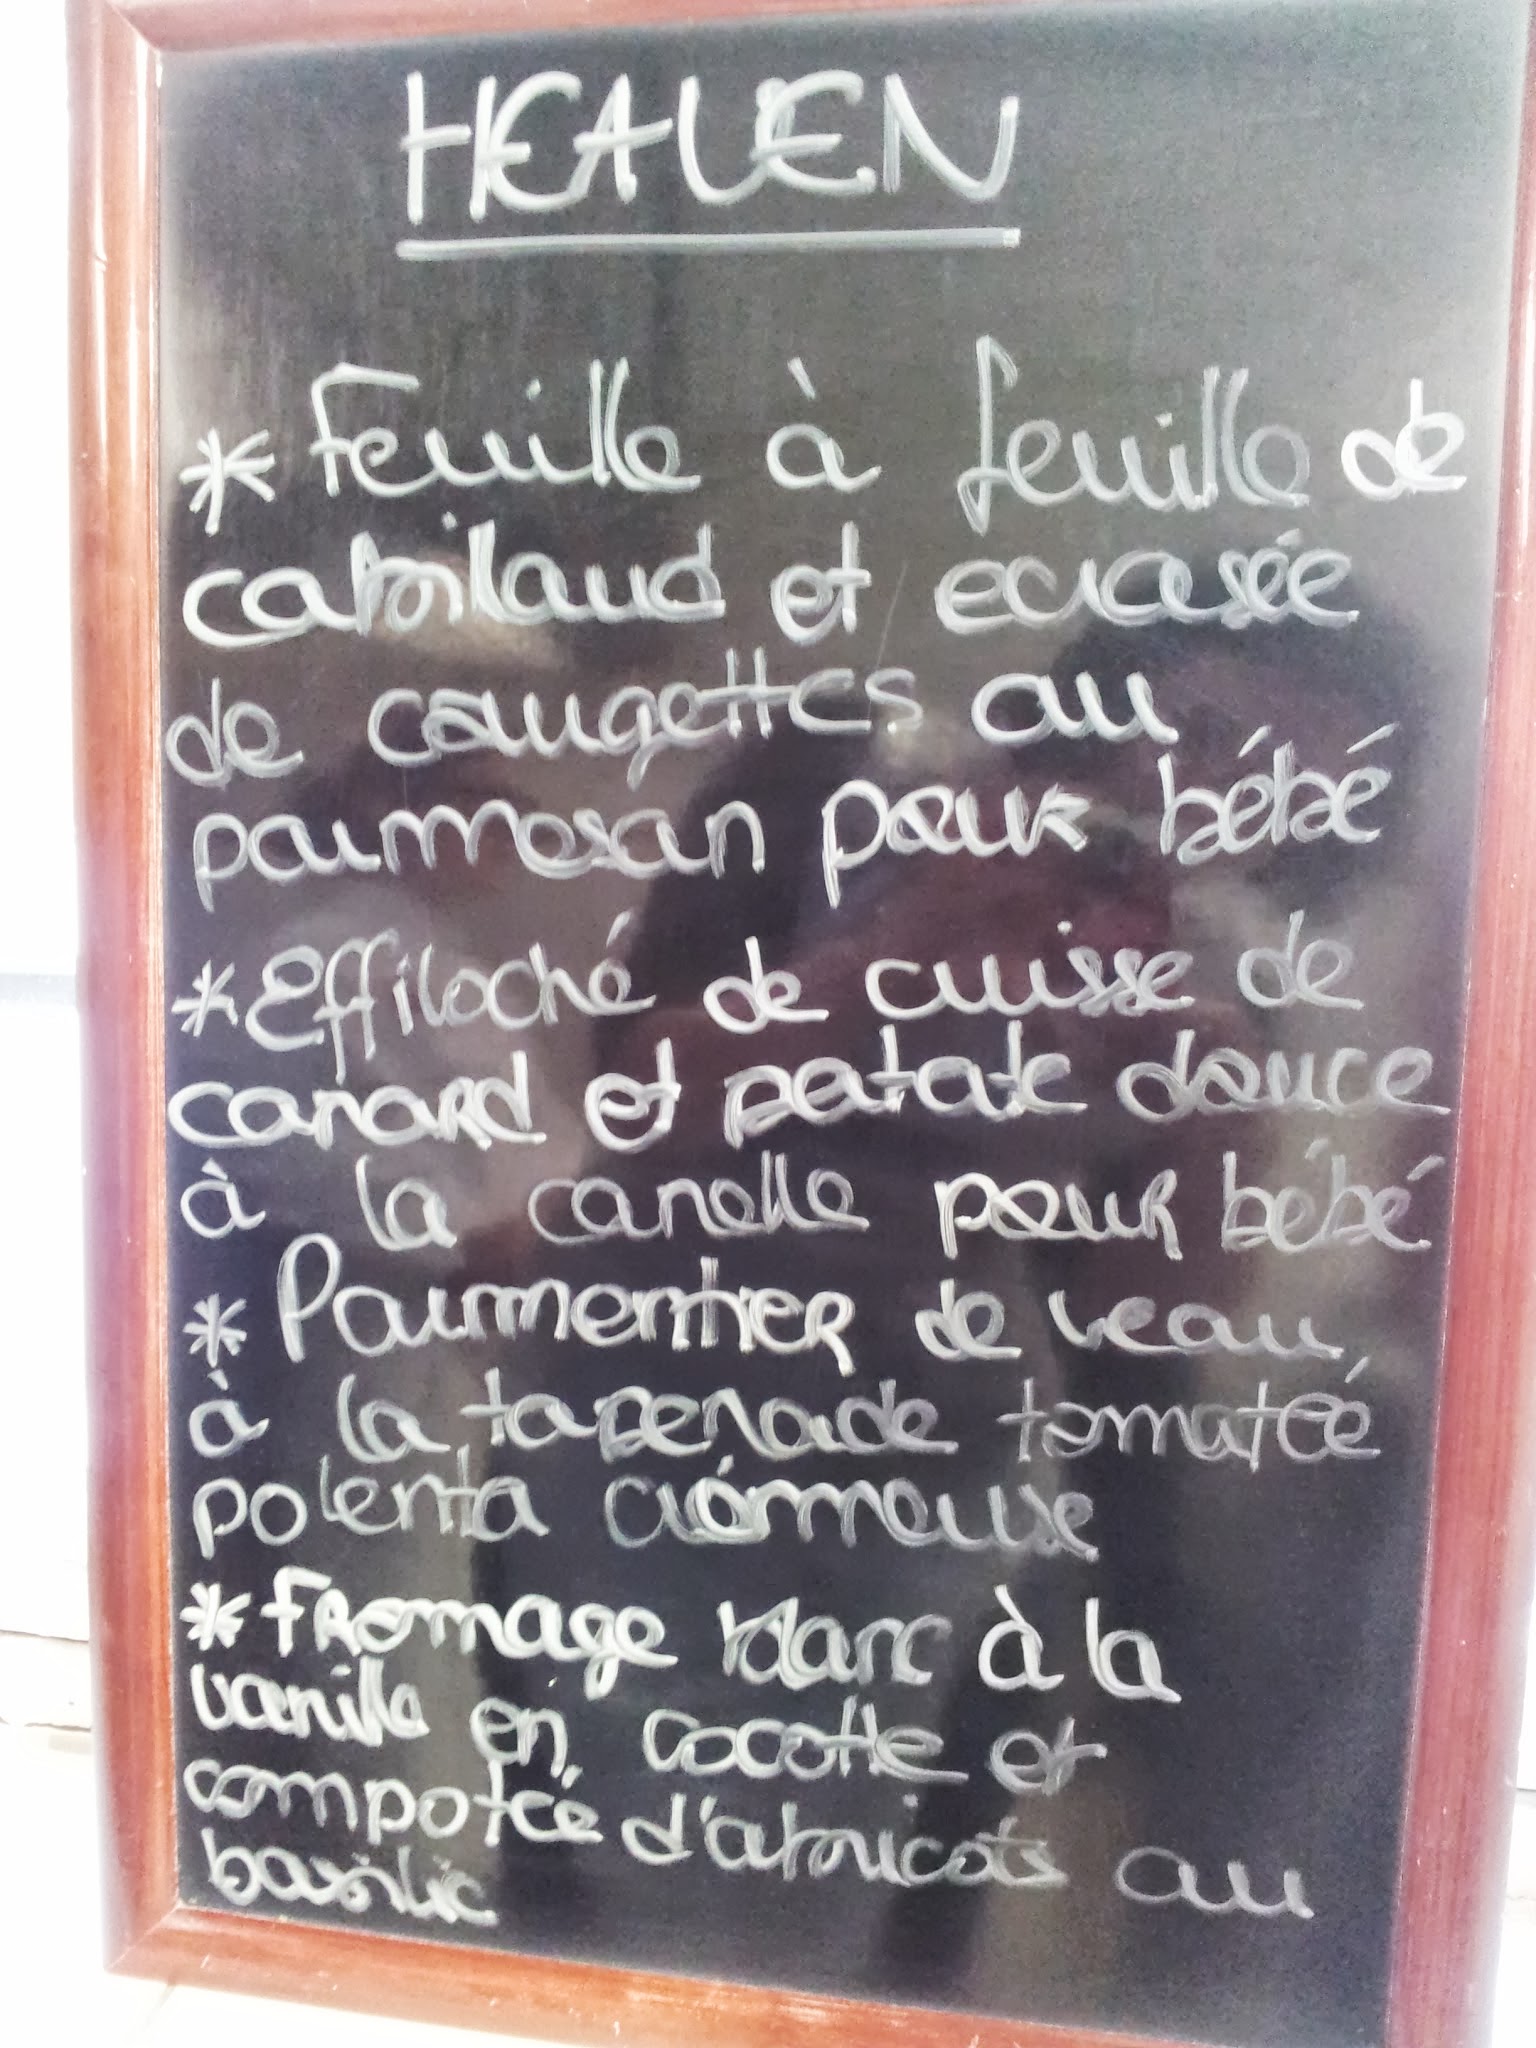 HEAVEN
* Feuille à feuille de
cabillaud et ecrasée
de courgettes au
parmesan pour bébé
* Effiloché de cuisse de
canard et patate douce
à la canelle pour bébé
* Parmentier de veau
à la tapenade tomatée
polenta crémeuse
* Fromage blanc à la
vanille en cocotte et
compotée d'abricots au
basilic